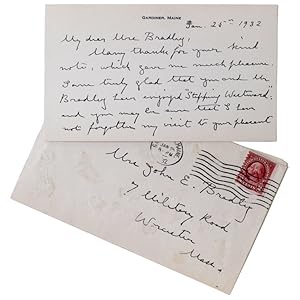 GARDINER, MAINE
Jan. 25th 1932
My dear Mrs Bradley,
Many thanks for your kind
note, which gave me much pleasure.
I am truly glad that you and Mr
Bradley have enjoyed "Stepping Westward"
and you may be sure that I have
not forgotten my visit to your pleasant
Mrs John E. Bradley
7 Military Road
Worcester
Mass.